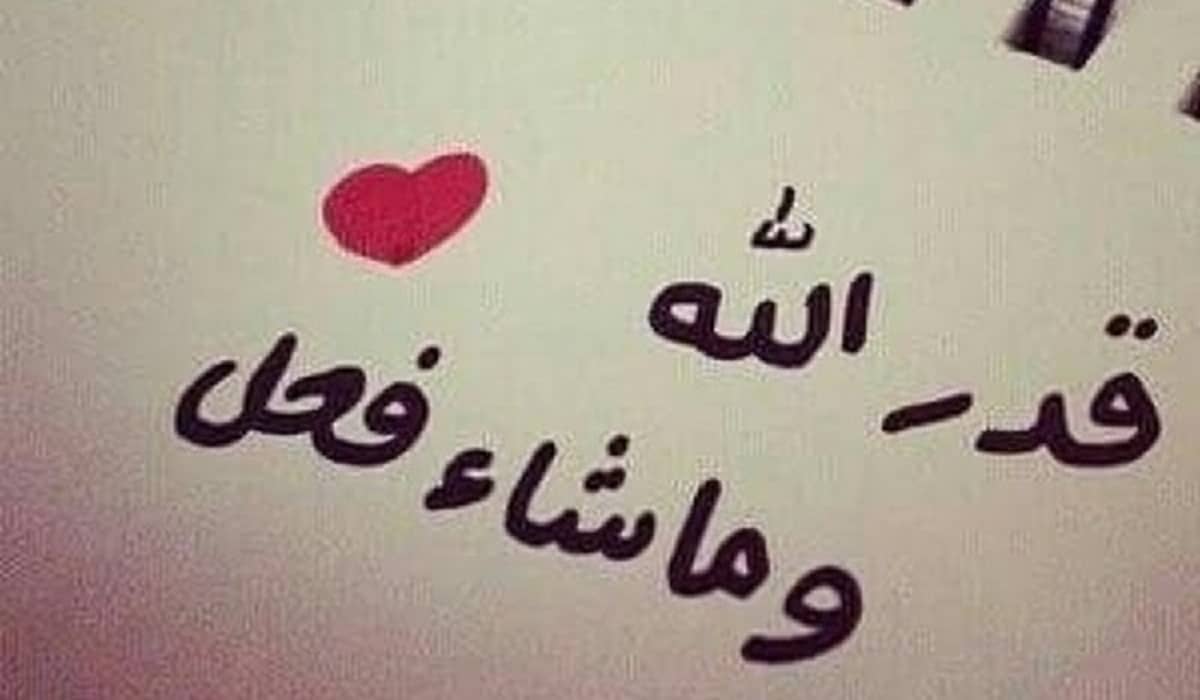 قدر الله
وما شاء فعل